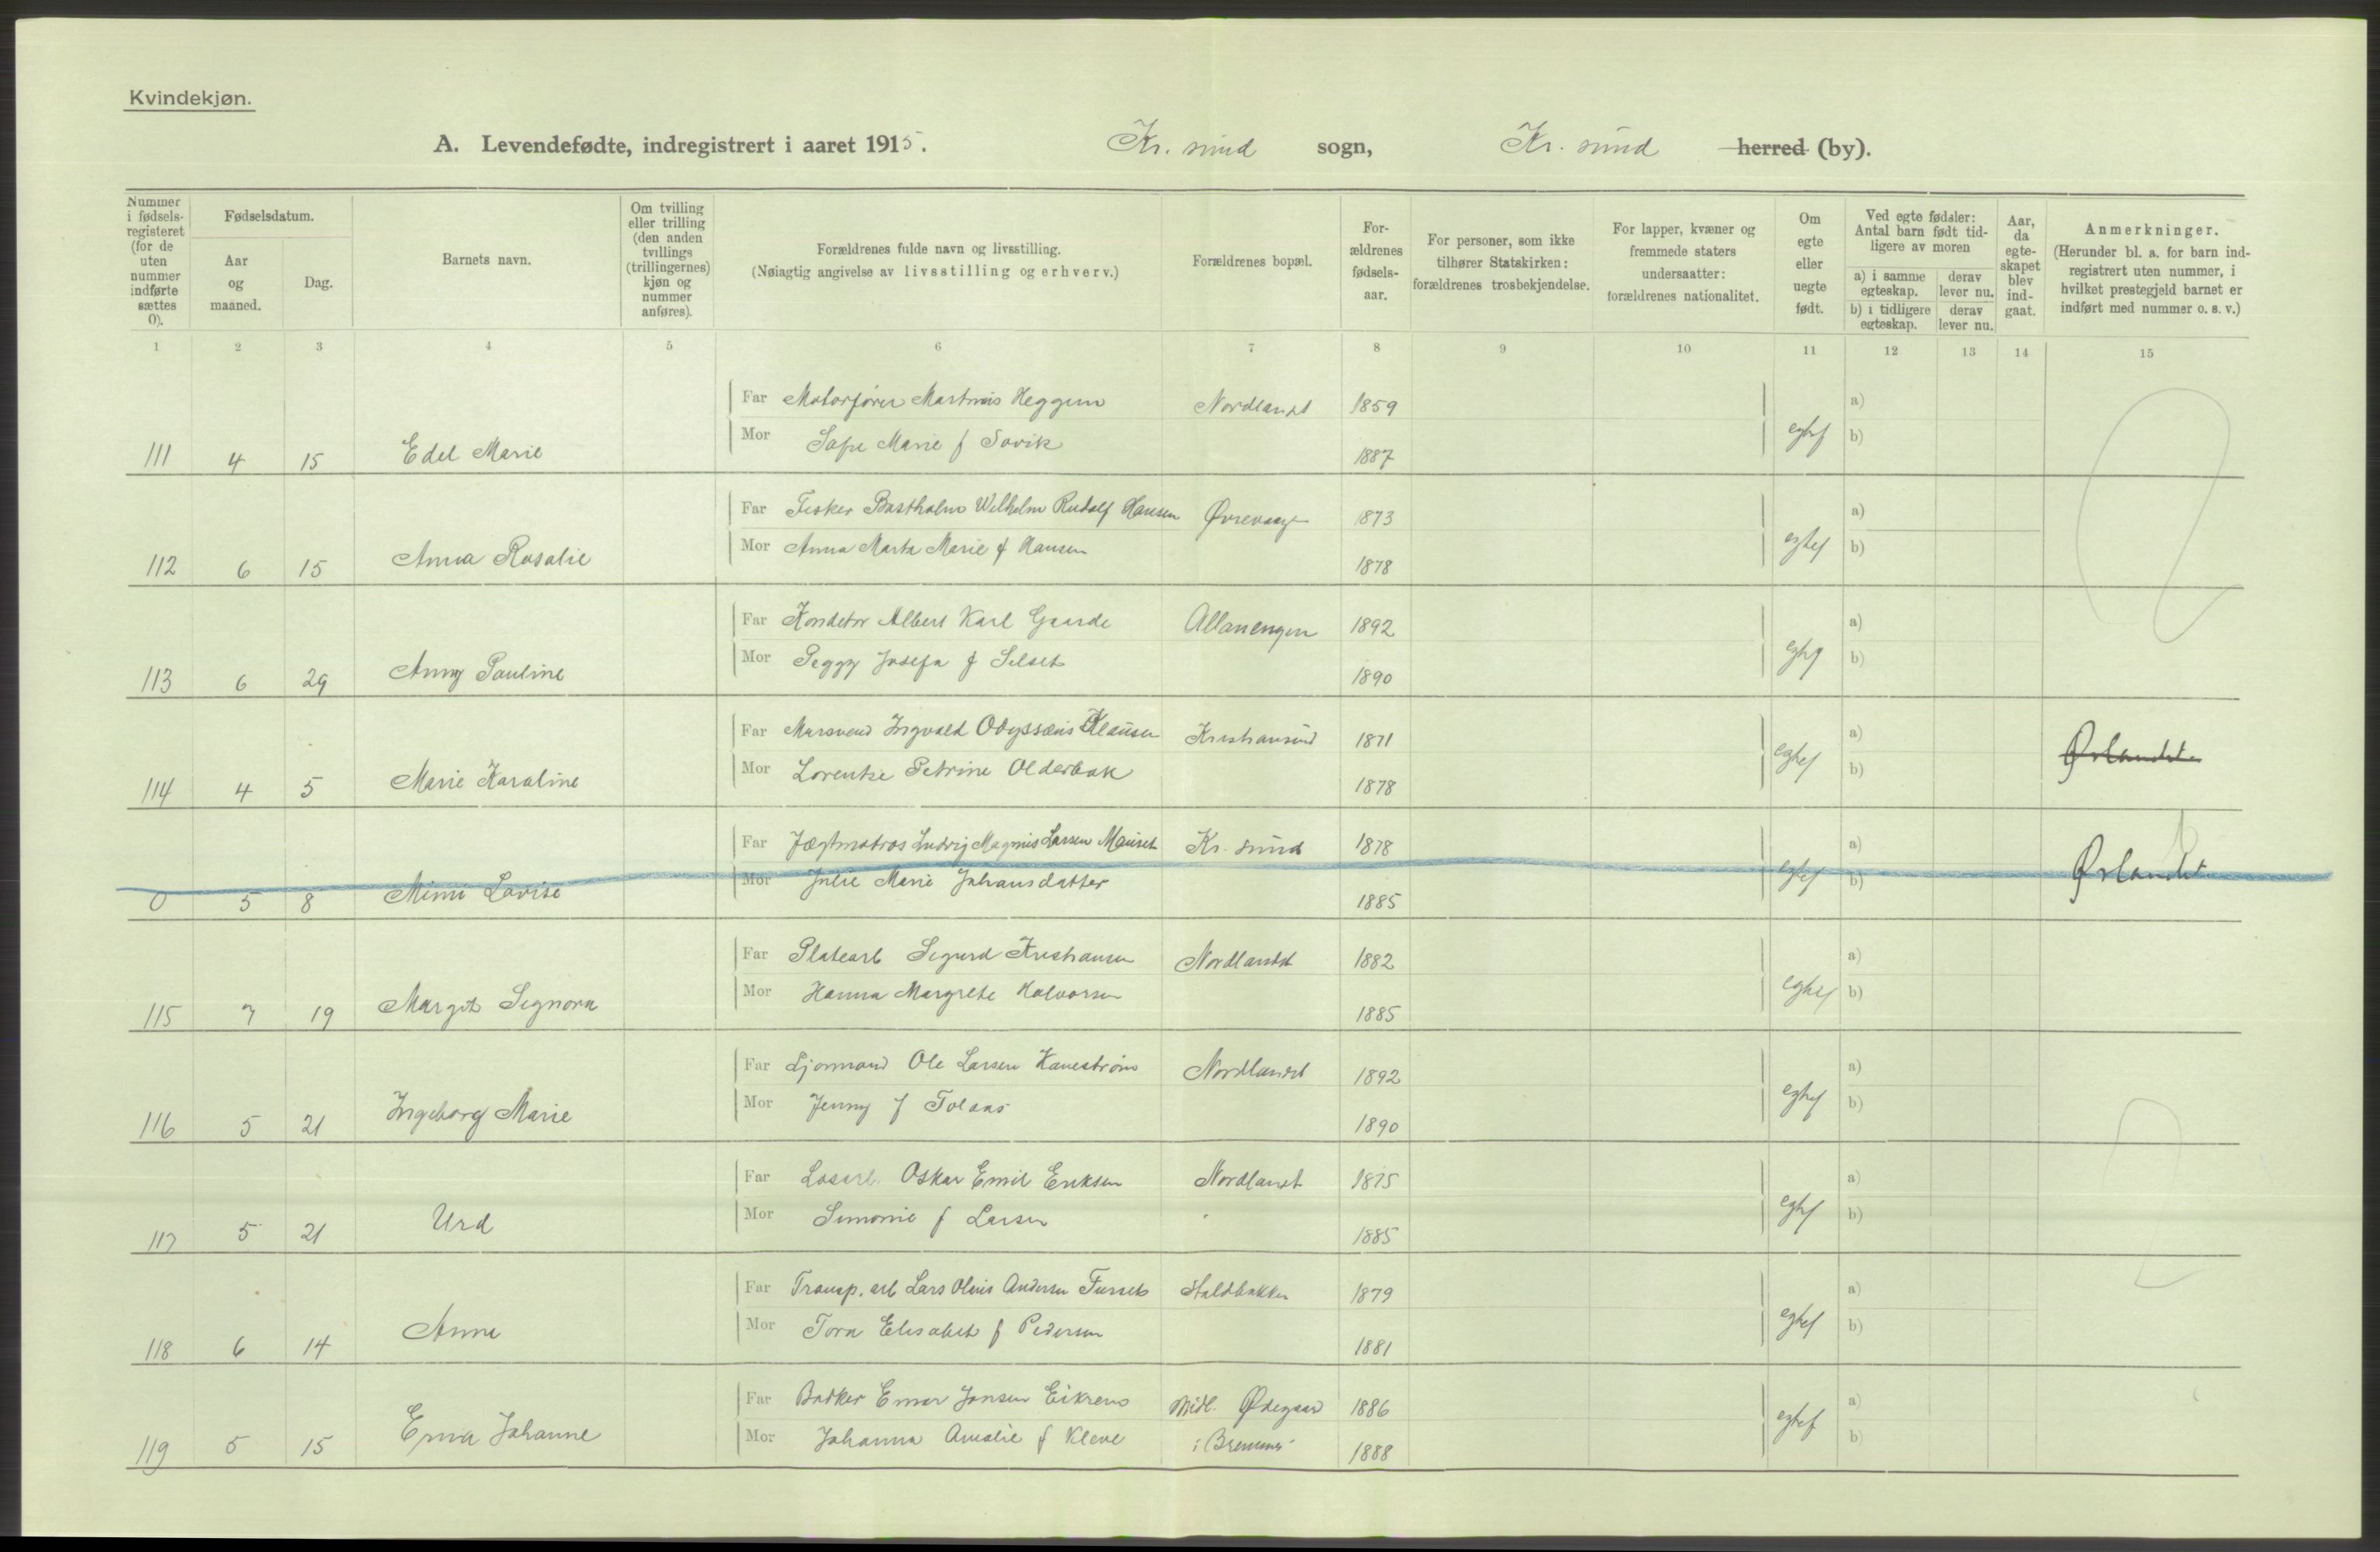 Kvindekjøn.
A. Levendefødte, indregistrert i aaret 1915. Kr. sund sogn, Kr. sund herred (by).
Nummer i fødselsregisteret (for de uten nummer indførte sættes 0).
Fødselsdatum.
Aar og maaned.
Dag.
Barnets navn.
Om tvilling eller trilling (den anden tvillings (trillingernes) kjøn og nummer anføres).
Forældrenes fulde navn og livsstilling.
(Nøiagtig angivelse av livsstilling og erhverv.)
Forældrenes bopæl.
Forældrenes fødselsaar.
For personer, som ikke tilhører Statskirken: forældrenes trosbekjendelse.
For lapper, kvæner og fremmede staters undersaatter: forældrenes nationalitet.
Om egte eller uegte født.
Ved egte fødsler: Antal barn født tidligere av moren
a) i samme egteskap. derav lever nu.
b) i tidligere egteskap. derav lever nu.
Aar, da egteskapet blev indgaat.
Anmerkninger.
(Herunder bl. a. for barn indregistrert uten nummer, i hvilket prestegjeld barnet er indført med nummer o. s. v.)
1 2 3 4 5 6 7 8 9 10 11 12 13 14 15
Far Motorfører Martinus Heggem Nordlandet 1859 a)
Mor Marie f Sovik 1887 b)
111 4 15 Edel Marie
Far Fisker Bastholm Wilhelm Rudolf Hansen 1873 a)
Mor Anna Marta Marie f Hansen 1878 b)
112 6 15 Anna Rosalie
Far Albert Karl Gaarde Allanengen 1892 a)
Mor Peggy Josefa f Selset 1890 b)
113 6 29 Anny Pauline
Far Mursvend Ingvald Odyssæus Klausen Kristiansund 1871 a)
Mor Lorentse Petrine Olderbak 1878 b)
114 4 5 Marie Karoline Ørlandet
Far Jægtmatros Ludvig Magnus Larsen Mauset Kr. sund 1878 a)
Mor Julie Marie Johansdatter 1885 b)
0 5 8 Mimi Lovise Ørlandet
Far Platearb Sigurd Kristiansen Nordlandet 1882 a)
Mor Hanna Margrete Halvorsen 1885 b)
115 7 19 Margit Signora
Far Sjømand Ole Larsen Kanestrøm Nordlandet 1892 a)
Mor Jenny f Tolaas 1890 b)
116 5 21 Ingeborg Marie
Far Løsarb. Oskar Emil Eriksen Nordlandet 1875 a)
Mor Simonie f Larsen 1885 b)
117 5 21 Urd
Far Transp. arb Lars Olaus Andersen Furset Staldbakken 1879 a)
Mor Tora Elisabet f Pedersen 1881 b)
118 6 14 Anne
Far Einar Jonsen Eikrem Midl. Ødegaard 1886 a)
Mor Johanna Amalie f Kleve i Bremsnes 1888 b)
119 5 15 Erna Johanne